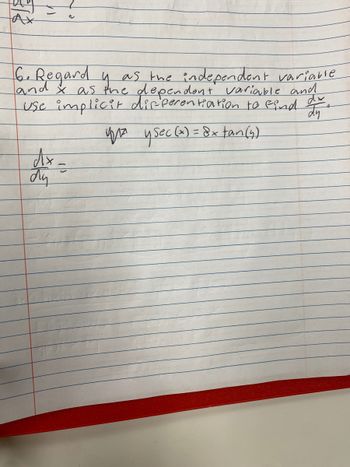 dy
dx = ?
6. Regard y as the independent variable
and x as the dependent variable and
use implicit differentiation to find dx/dy.
y sec(x) = 8x tan(y)
dx/dy =